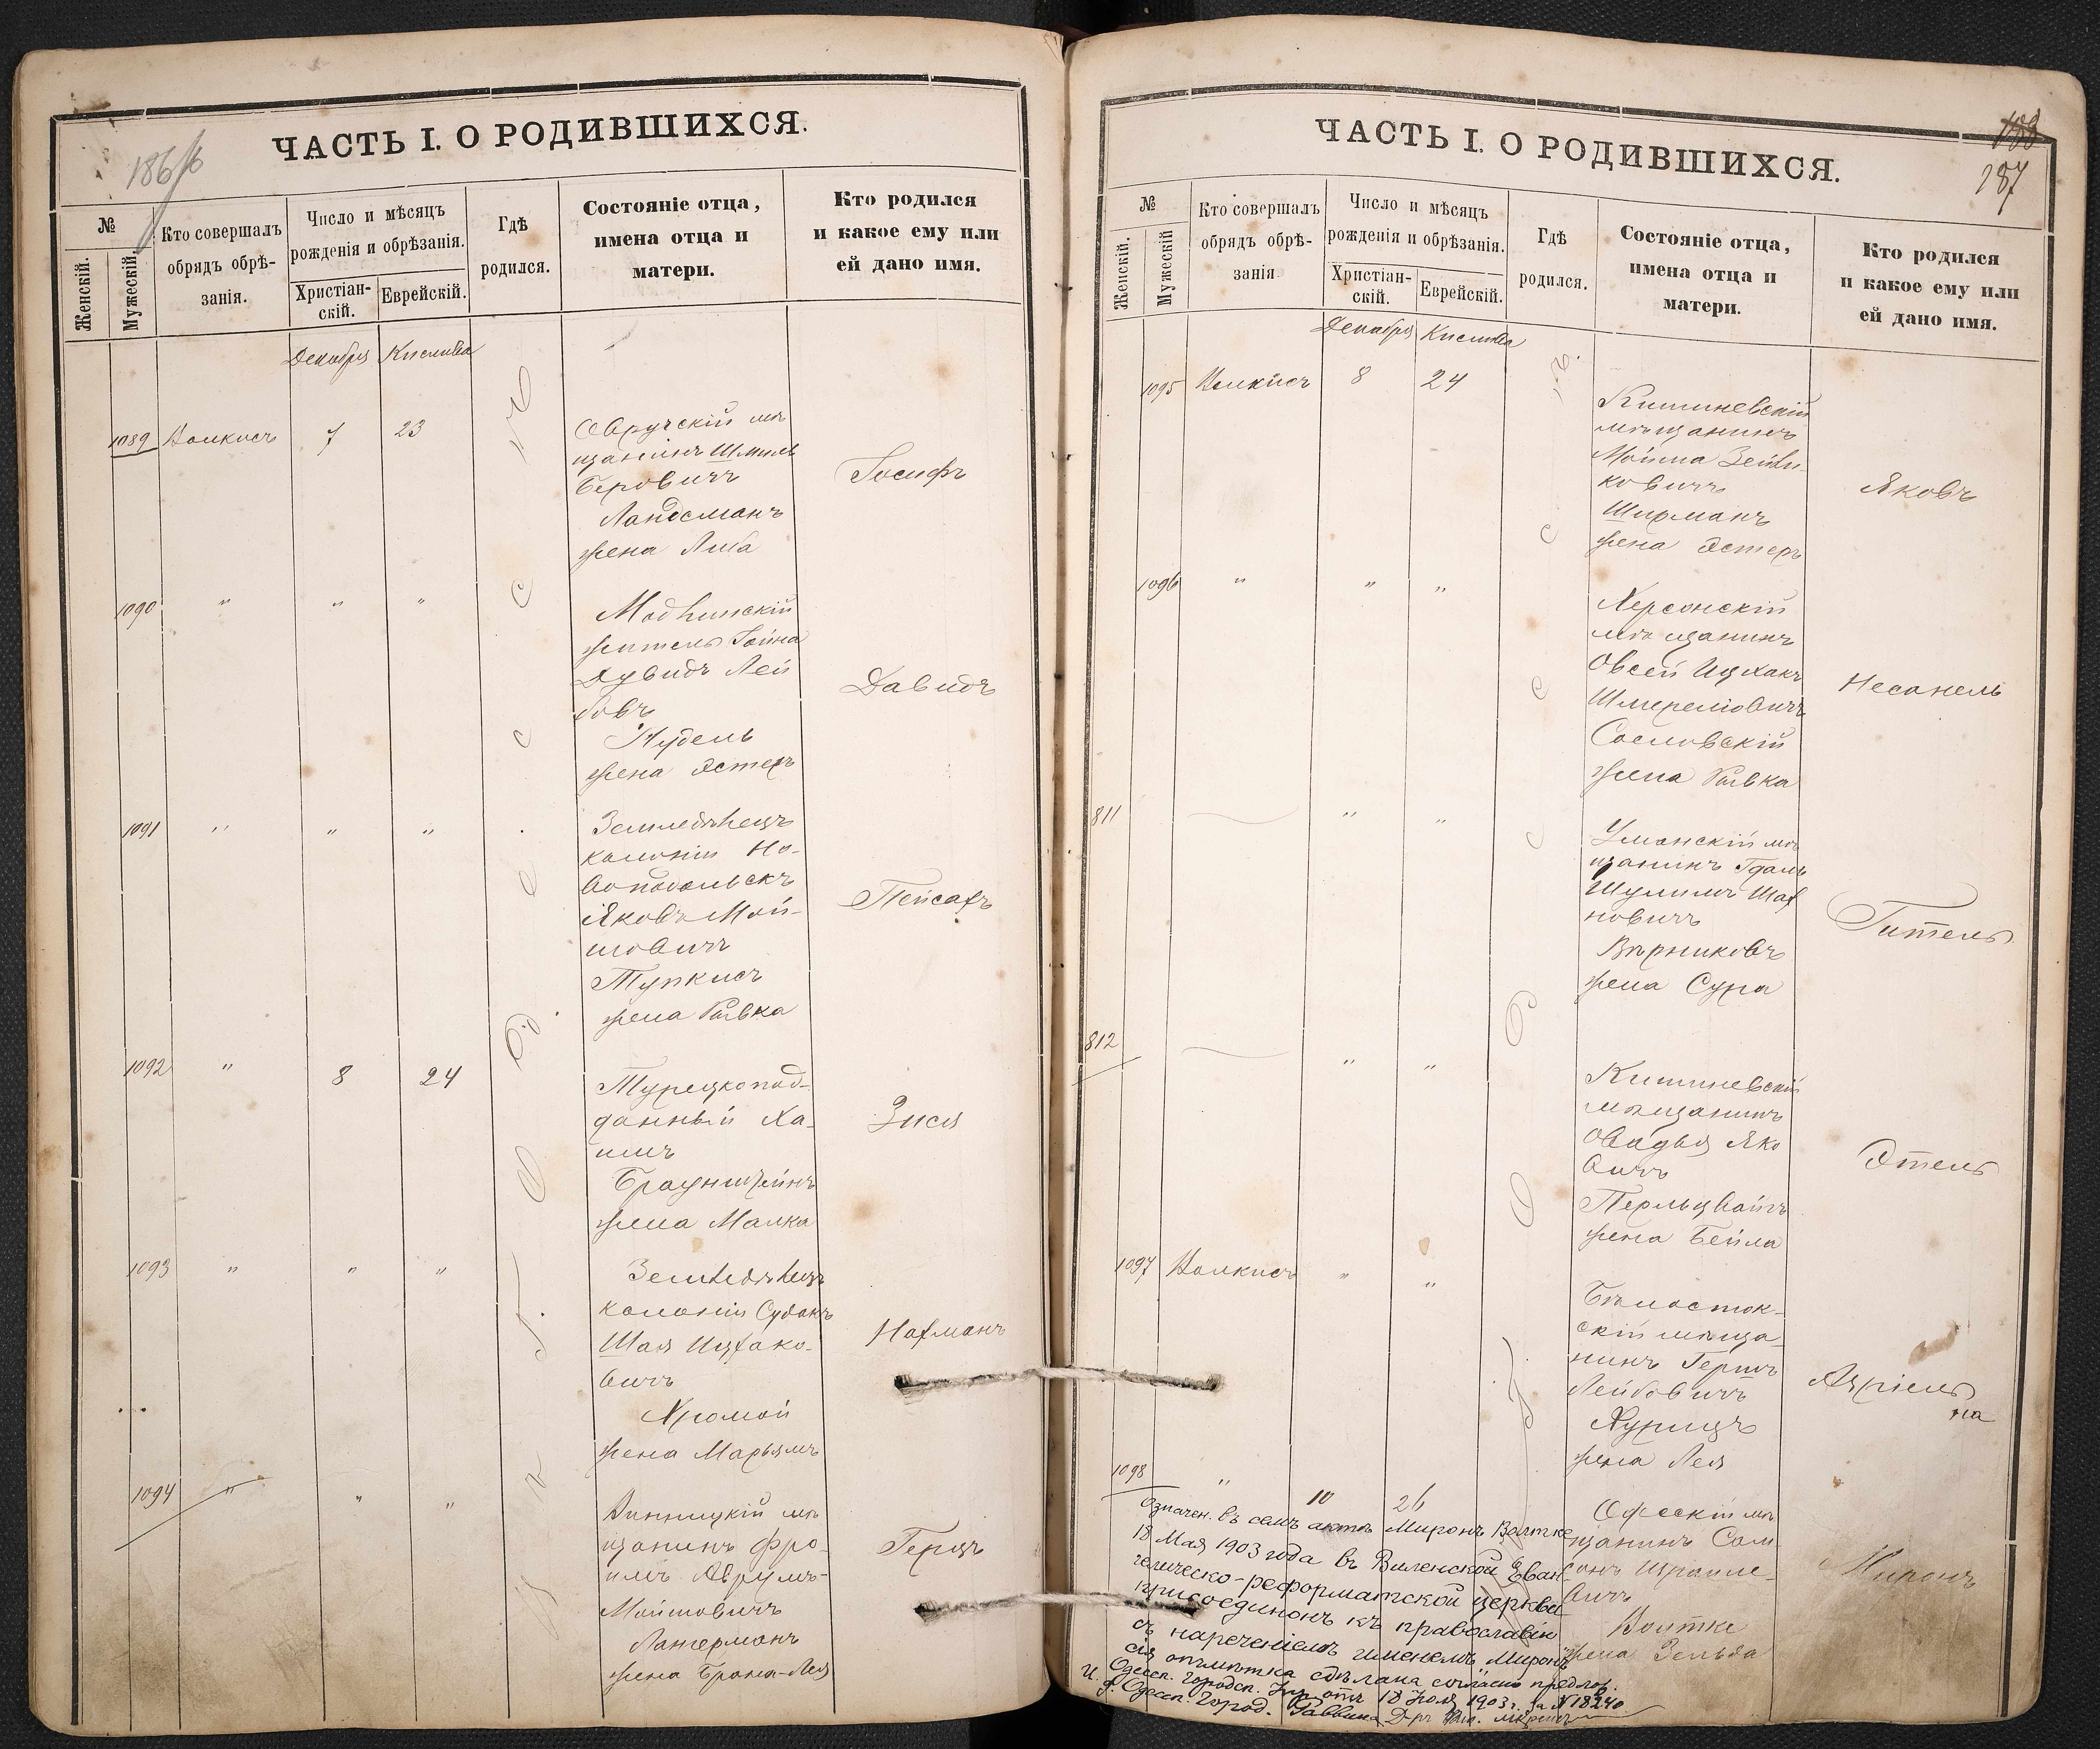 ЧАСТЬ I. О РОДИВШИХСЯ.
№
Женскій.
Мужескій.
Кто совершалъ
обрядъ обрѣ-
занія.
Число и мѣсяцъ
рожденія и обрѣзанія.
Христіан-
скій.
Еврейскій.
Гдѣ
родился.
Состояніе отца,
имена отца и
матери.
Кто родился
и какое ему или
ей дано имя.
Декабря Кислива
1089 7 23
Овручскій мѣ
щанинъ Шмиль
Беровичъ
Ландсманъ
жена Либа
Іосифъ
1090 " " "
житель Іойна
Дувидъ Лей
бовъ
Нудель
жена Эстеръ
Давидъ
1091 " " "
Земледѣлецъ
колоніи Но-
воподольскъ
Яковъ Мой-
шовичъ
жена Ривка
Пейсахъ
1092 " 8 24
Турецкопод-
данный Ха-
имъ
Браунштейнъ
жена Малка
Зися
1093 " " "
Земледѣлецъ
колоніи Судакъ
Шая Ицхако-
вичъ
Хромой
жена Марьямъ
Нахманъ
1094 " " "
Винницкій мѣ
щанинъ Фро-
имъ Аврумъ-
Мойшовичъ
Лангерманъ
жена Брана-Лея
Герцъ
ЧАСТЬ I. О РОДИВШИХСЯ.
187
№
Женскій.
Мужескій
Кто совершалъ
обрядъ обрѣ-
занія
Число и мѣсяцъ
рожденія и обрѣзанія.
Христіан-
скій.
Еврейскій.
Гдѣ
родился.
Состояніе отца,
имена отца и
матери.
Кто родился
и какое ему или
ей дано имя.
Декабря Кислива
1095 8 24
Кишиневскій
мѣщанинъ
Мойша Зейли-
ковичъ
Ширманъ
жена Эстеръ
Яковъ
1096 " " "
Херсонскій
мѣщанинъ
Овсей Ицхакъ
Шмереліовичъ
жена Ривка
Несанель
811 " "
Уманскій мѣ
щанинъ Гдаль
Шулимъ Шах
новичъ
Вѣрниковъ
жена Сура
Гитель
812 " "
Кишиневскій
мѣщанинъ
Овадья Яко
вичъ
Перльцвайгъ
жена Бейла
Этель
1097 " "
Бѣлосток-
скій мѣща
нинъ Гершъ
Лейбовичъ
жена Лея
Азріель
1098 " 10 26
Одесскій мѣ
щанинъ Сам
сонъ Израиле-
вичъ
Волтке
жена Зельда
Миронъ
Означен. въ семъ актѣ Миронъ Волтке
18 Мая 1903 года въ Виленской Еван-
гелическо-реформатской церкви
присоединонъ къ православію
съ нареченіемъ именемъ Миронъ
сія отмѣтка сдѣлана согласно предлож.
Одесск. Городск. Упр. отъ 18 Іюля 1903 г. за № 18240
И. д. Одесск. Город. Раввина Д-ръ